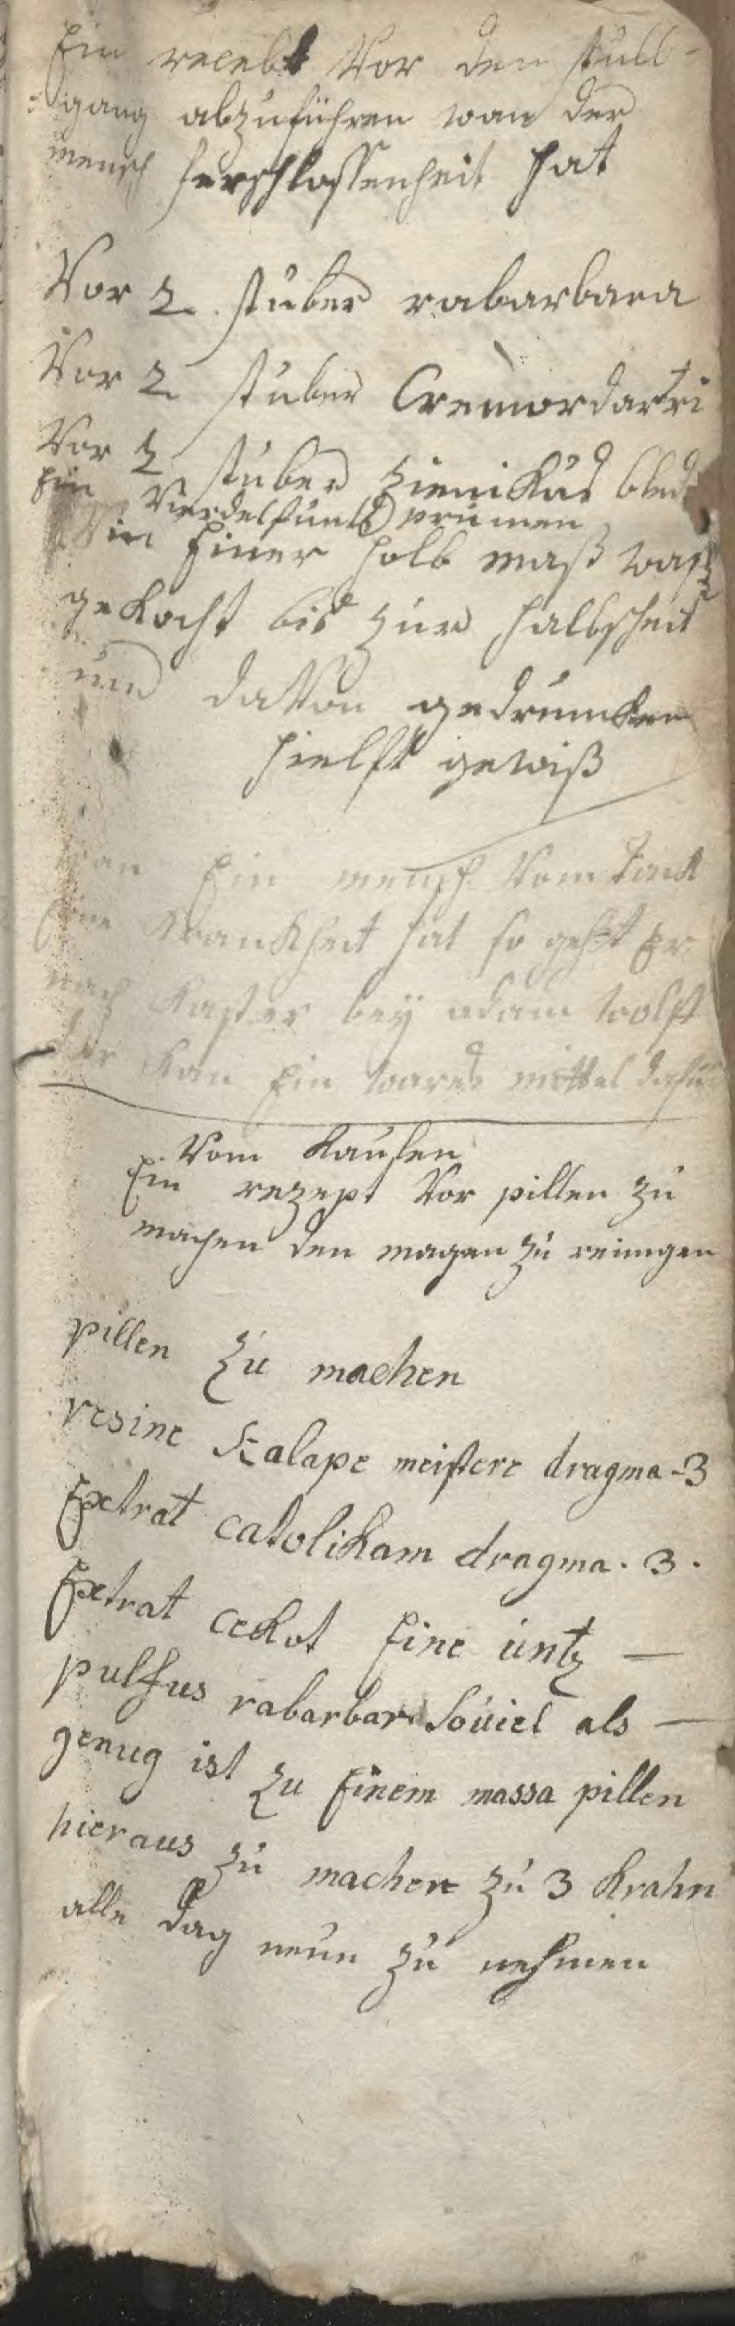 Ein recebt Vor den stull=
=gang abzuführen wan der
mensch ferschlossenheit hat
Vor 2 stuber rabarbara
Vor 2 stuber Cremordartri
Vor 2 stuber zienikus bled
Ein Verdelfunt prumen
in Einer holb maß waß
gekocht bis zur halbscheit
und davon gedruncken
hielft gewiß
wan Ein mensch Vom
Eine Krankheit hat so gehet Er
nach Kaster bey adam wolff
der kan Ein wares mittel dafur
Vom
Ein rezept Vor pillen zu
machen den magen zu reinigen
pillen zu machen
resine Kalape meistere dragma - 3
Extrat catolikam dragma . 3 .
Extrat cekot Eine untz —
pulfus rabarbar soviel als —
genug ist zu Einem massa pillen
hieraus zu machen zu 3 Krahn
alle dag neun zu nehmen